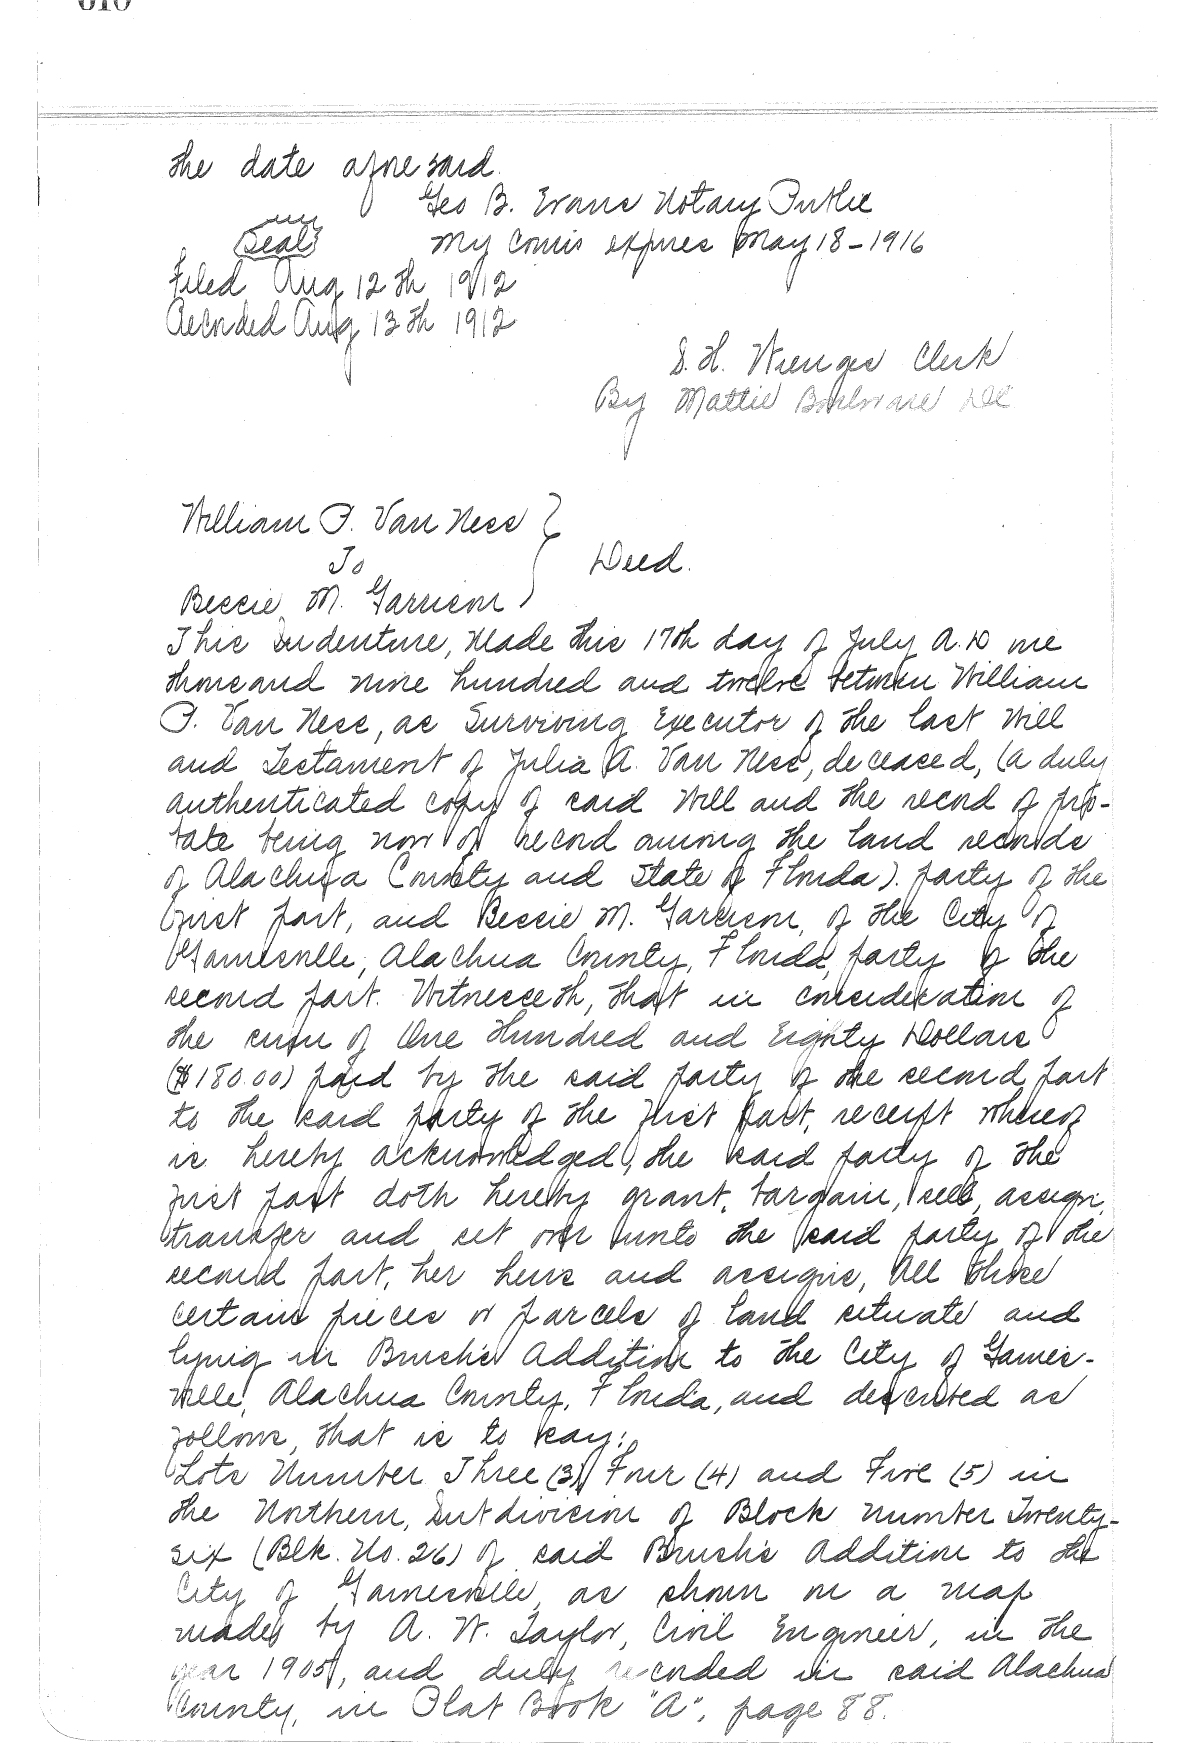 the date aforesaid.
Geo B. Evans Notary Public
Seal My Comis expires May 18-1916
Filed Aug 12th 1912
Recorded Aug 13th 1912
S. H. Wienges Clerk
By Mattie Boulware DC
William P. Van Ness
To
Deed.
Bessie M. Garrison
This Indenture, Made this 17th day of July A.D one
thousand nine hundred and twelve between William
P. Van Ness, as Surviving Executor of the last Will
and Testament of Julia A. Van Ness, deceased, (a duly
authenticated copy of said Will and the record of pro-
bate being now of record among the land records
of Alachua County and State of Florida). party of the
first part, and Bessie M. Garrison, of the City of
Gainesville, Alachua County, Florida, party of the
second part. Witnesseth, that in consideration of
the sum of One Hundred and Eighty Dollars
($180.00) paid by the said party of the second part
to the said party of the first part, receipt whereof
is hereby acknowledged, the said party of the
first part doth hereby grant, bargain, sell, assign,
transfer and set over unto the said party of the
second part, her heirs and assigns, All those
certain pieces or parcels of land situate and
lying in Brush's Addition to the City of Gaines-
ville, Alachua County, Florida, and described as
follows, that is to say:
Lots Number Three (3) Four (4) and Five (5) in
the Northern, Subdivision of Block Number Twenty-
six (Blk. No. 26) of said Brush's Addition to the
City of Gainesville, as shown on a map
made by A. W. Taylor, Civil Engineer, in the
year 1905, and duly recorded in said Alachua
County, in Plat Book "A", page 88.